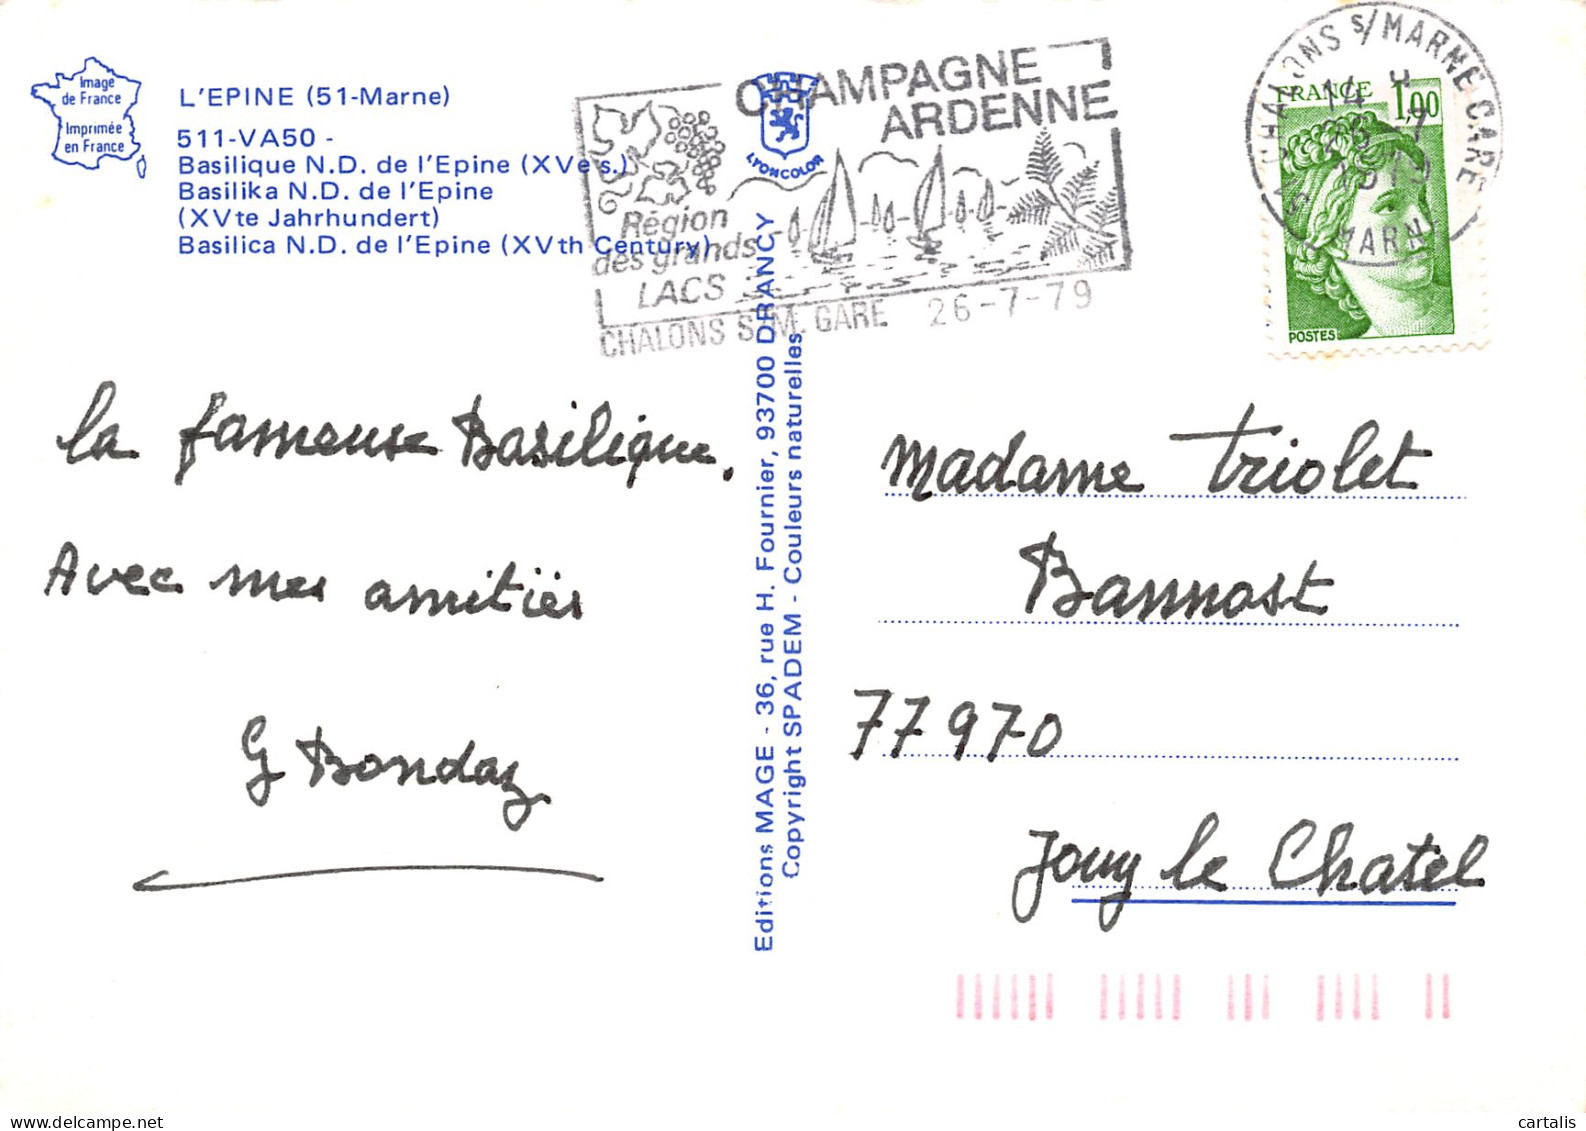 Image
de France
Imprimée
en France
L'EPINE (51-Marne)
511-VA50 -
Basilique N.D. de l'Epine (XVe s.)
Basilika N.D. de l'Epine
(XVte Jahrhundert)
Basilica N.D. de l'Epine (XVth Century)
CHAMPAGNE
ARDENNE
Région
des grands
LACS
CHALONS S/M. GARE 26-7-79
LYONCOLOR
CHALONS S/MARNE GARE
MARNE
FRANCE 1,00
POSTES
la fameuse Basilique.
Avec mes amitiés
G Bondaz
Editions MAGE - 36, rue H. Fournier, 93700 DRANCY
Copyright SPADEM - Couleurs naturelles
Madame Triolet
Bannost
77970
Jouy le Chatel
cartalis